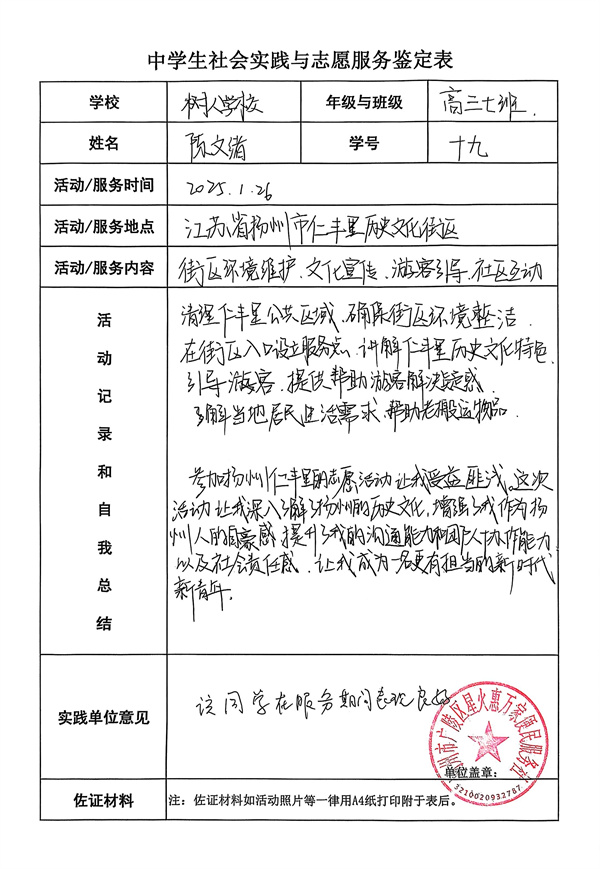 中学生社会实践与志愿服务鉴定表
学校 树人学校 年级与班级 高三七班.
姓名 陈文绪 学号 十九
活动/服务时间 2025.1.26
活动/服务地点 江苏省扬州市仁丰里历史文化街区
活动/服务内容 街区环境维护、文化宣传、游客引导、社区互动
活动记录和自我总结
清理仁丰里公共区域,确保街区环境整洁.
在街区入口设立服务点,讲解仁丰里历史文化特色
引导游客,提供帮助游客解决疑惑
了解当地居民生活需求 帮助老搬运物品.
参加扬州仁丰里的志愿活动让我受益匪浅。这次
活动让我深入了解了扬州的历史文化,增强了我作为扬
州人的自豪感 提升了我的沟通能力和团队协作能力
以及社会责任感.让我成为一名更有担当的新时代
新青年.
实践单位意见 该同学在服务期间表现良好
单位盖章:
州市广陵区星火惠万家便民服务社
3210020932787
佐证材料 注:佐证材料如活动照片等一律用A4纸打印附于表后。